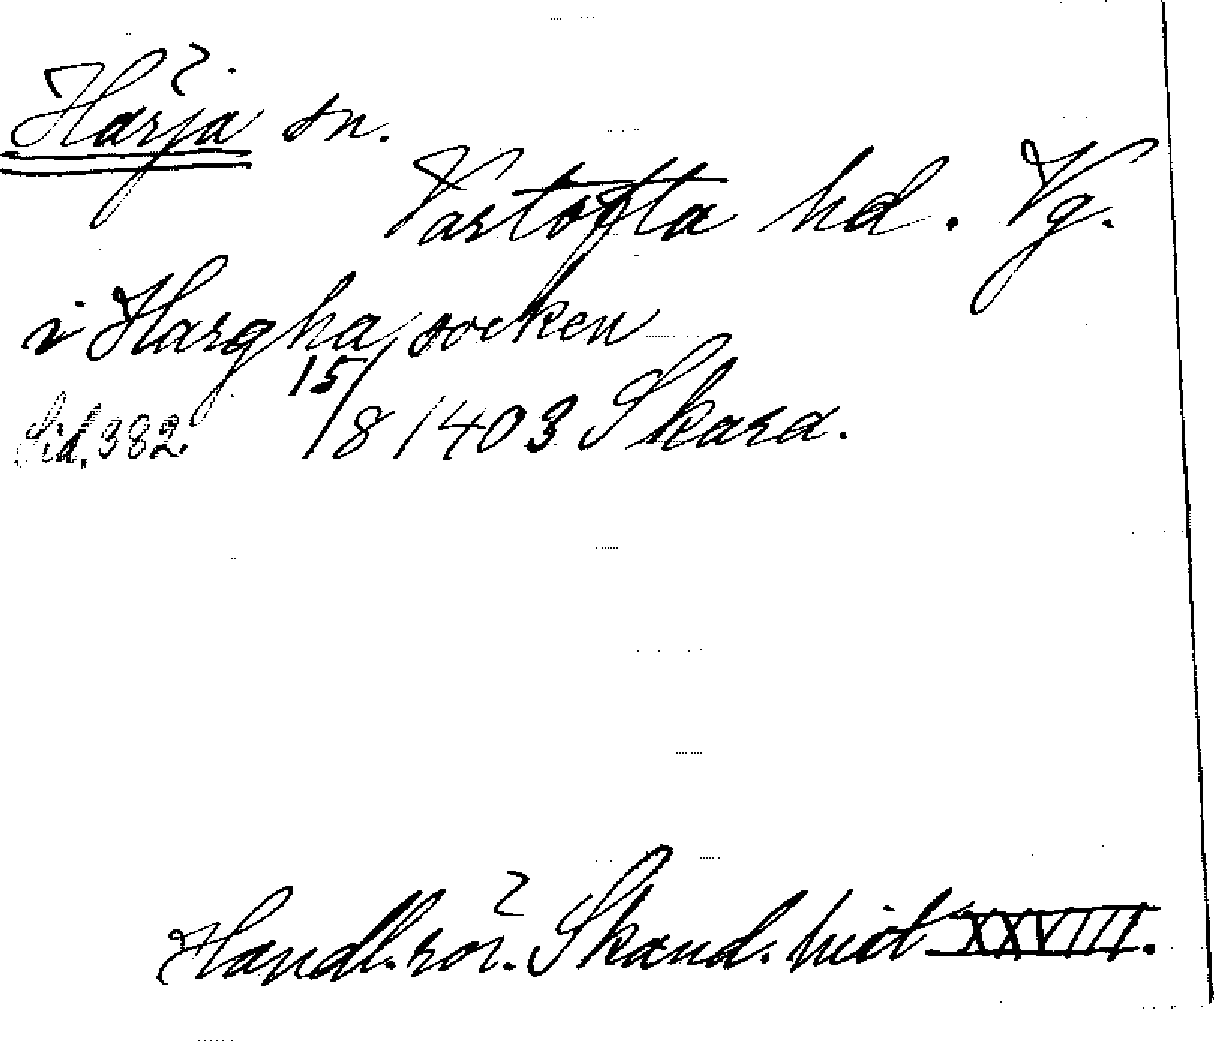 Härja sn.
Vartofta hd. Vg.
i Hargha socken
Sid. 382. 15/8 1403 Skara.
Handl. rör. Skand. hist XXVIII.